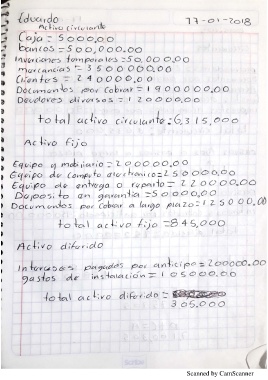 Eduardo 23-01-2018
Activo circulante
Caja = 5000.00
bancos = 500,000.00
Inversiones temporales = 50,000.00
mercancias = 3500000.00
Clientes = 240000.00
Documentos por cobrar = 1900000.00
Deudores diversos = 120000.00
total activo circulante: 6,315,000
Activo fijo
Equipo y mobiliario = 200000.00
Equipo de computo electronico = 250000.00
Equipo de entrega o reparto = 220000.00
Deposito en garantia = 50000.00
Documentos por cobrar a largo plazo = 125000.00
total activo fijo = 845,000
Activo diferido
Intereses pagados por anticipo = 200000.00
gastos de instalación = 105000.00
total activo diferido =
305,000
Scanned by CamScanner